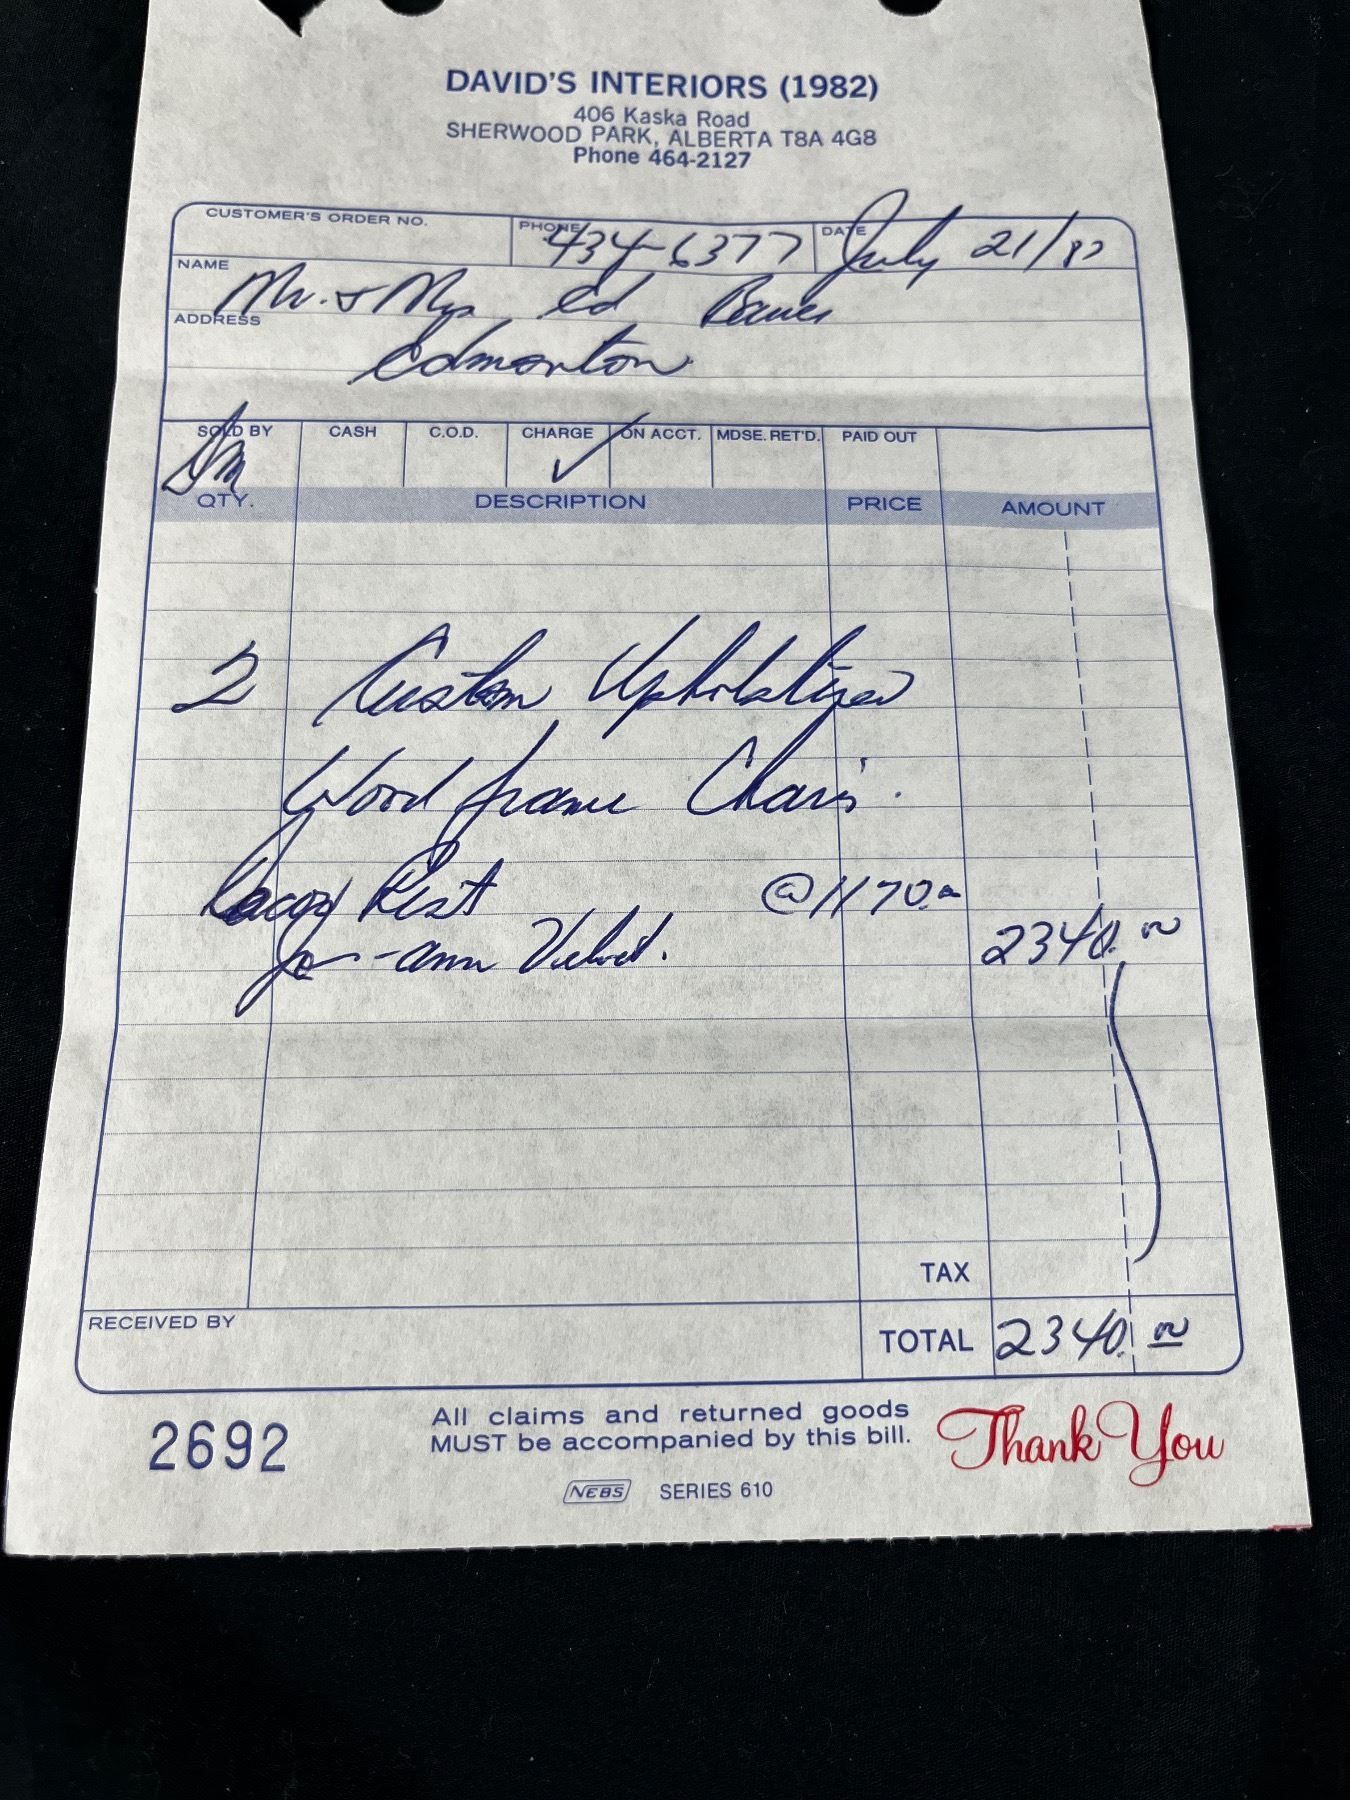 DAVID'S INTERIORS (1982)
406 Kaska Road
SHERWOOD PARK, ALBERTA T8A 4G8
Phone 464-2127
CUSTOMER'S ORDER NO. PHONE 434-6377 DATE July 21/
NAME Mr. & Mrs Ed Bauer
ADDRESS Edmonton
SOLD BY CASH C.O.D. CHARGE ✓ ON ACCT. MDSE. RET'D. PAID OUT
QTY. DESCRIPTION PRICE AMOUNT
2 Custom Upholstered
Wood frame Chairs.
@ 1170.00
Jo-ann Velvet. 2340.00
TAX
RECEIVED BY TOTAL 2340.00
2692
All claims and returned goods
MUST be accompanied by this bill.
Thank You
NEBS SERIES 610